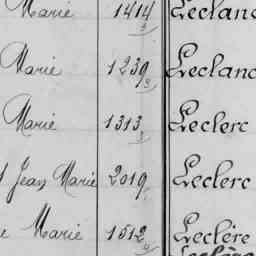 Marie 1414 3 Leclanc
Marie 1239 3 Leclanc
Marie 1313 3 Leclerc
Jean Marie 2019 Leclerc
e Marie 1512 Leclère